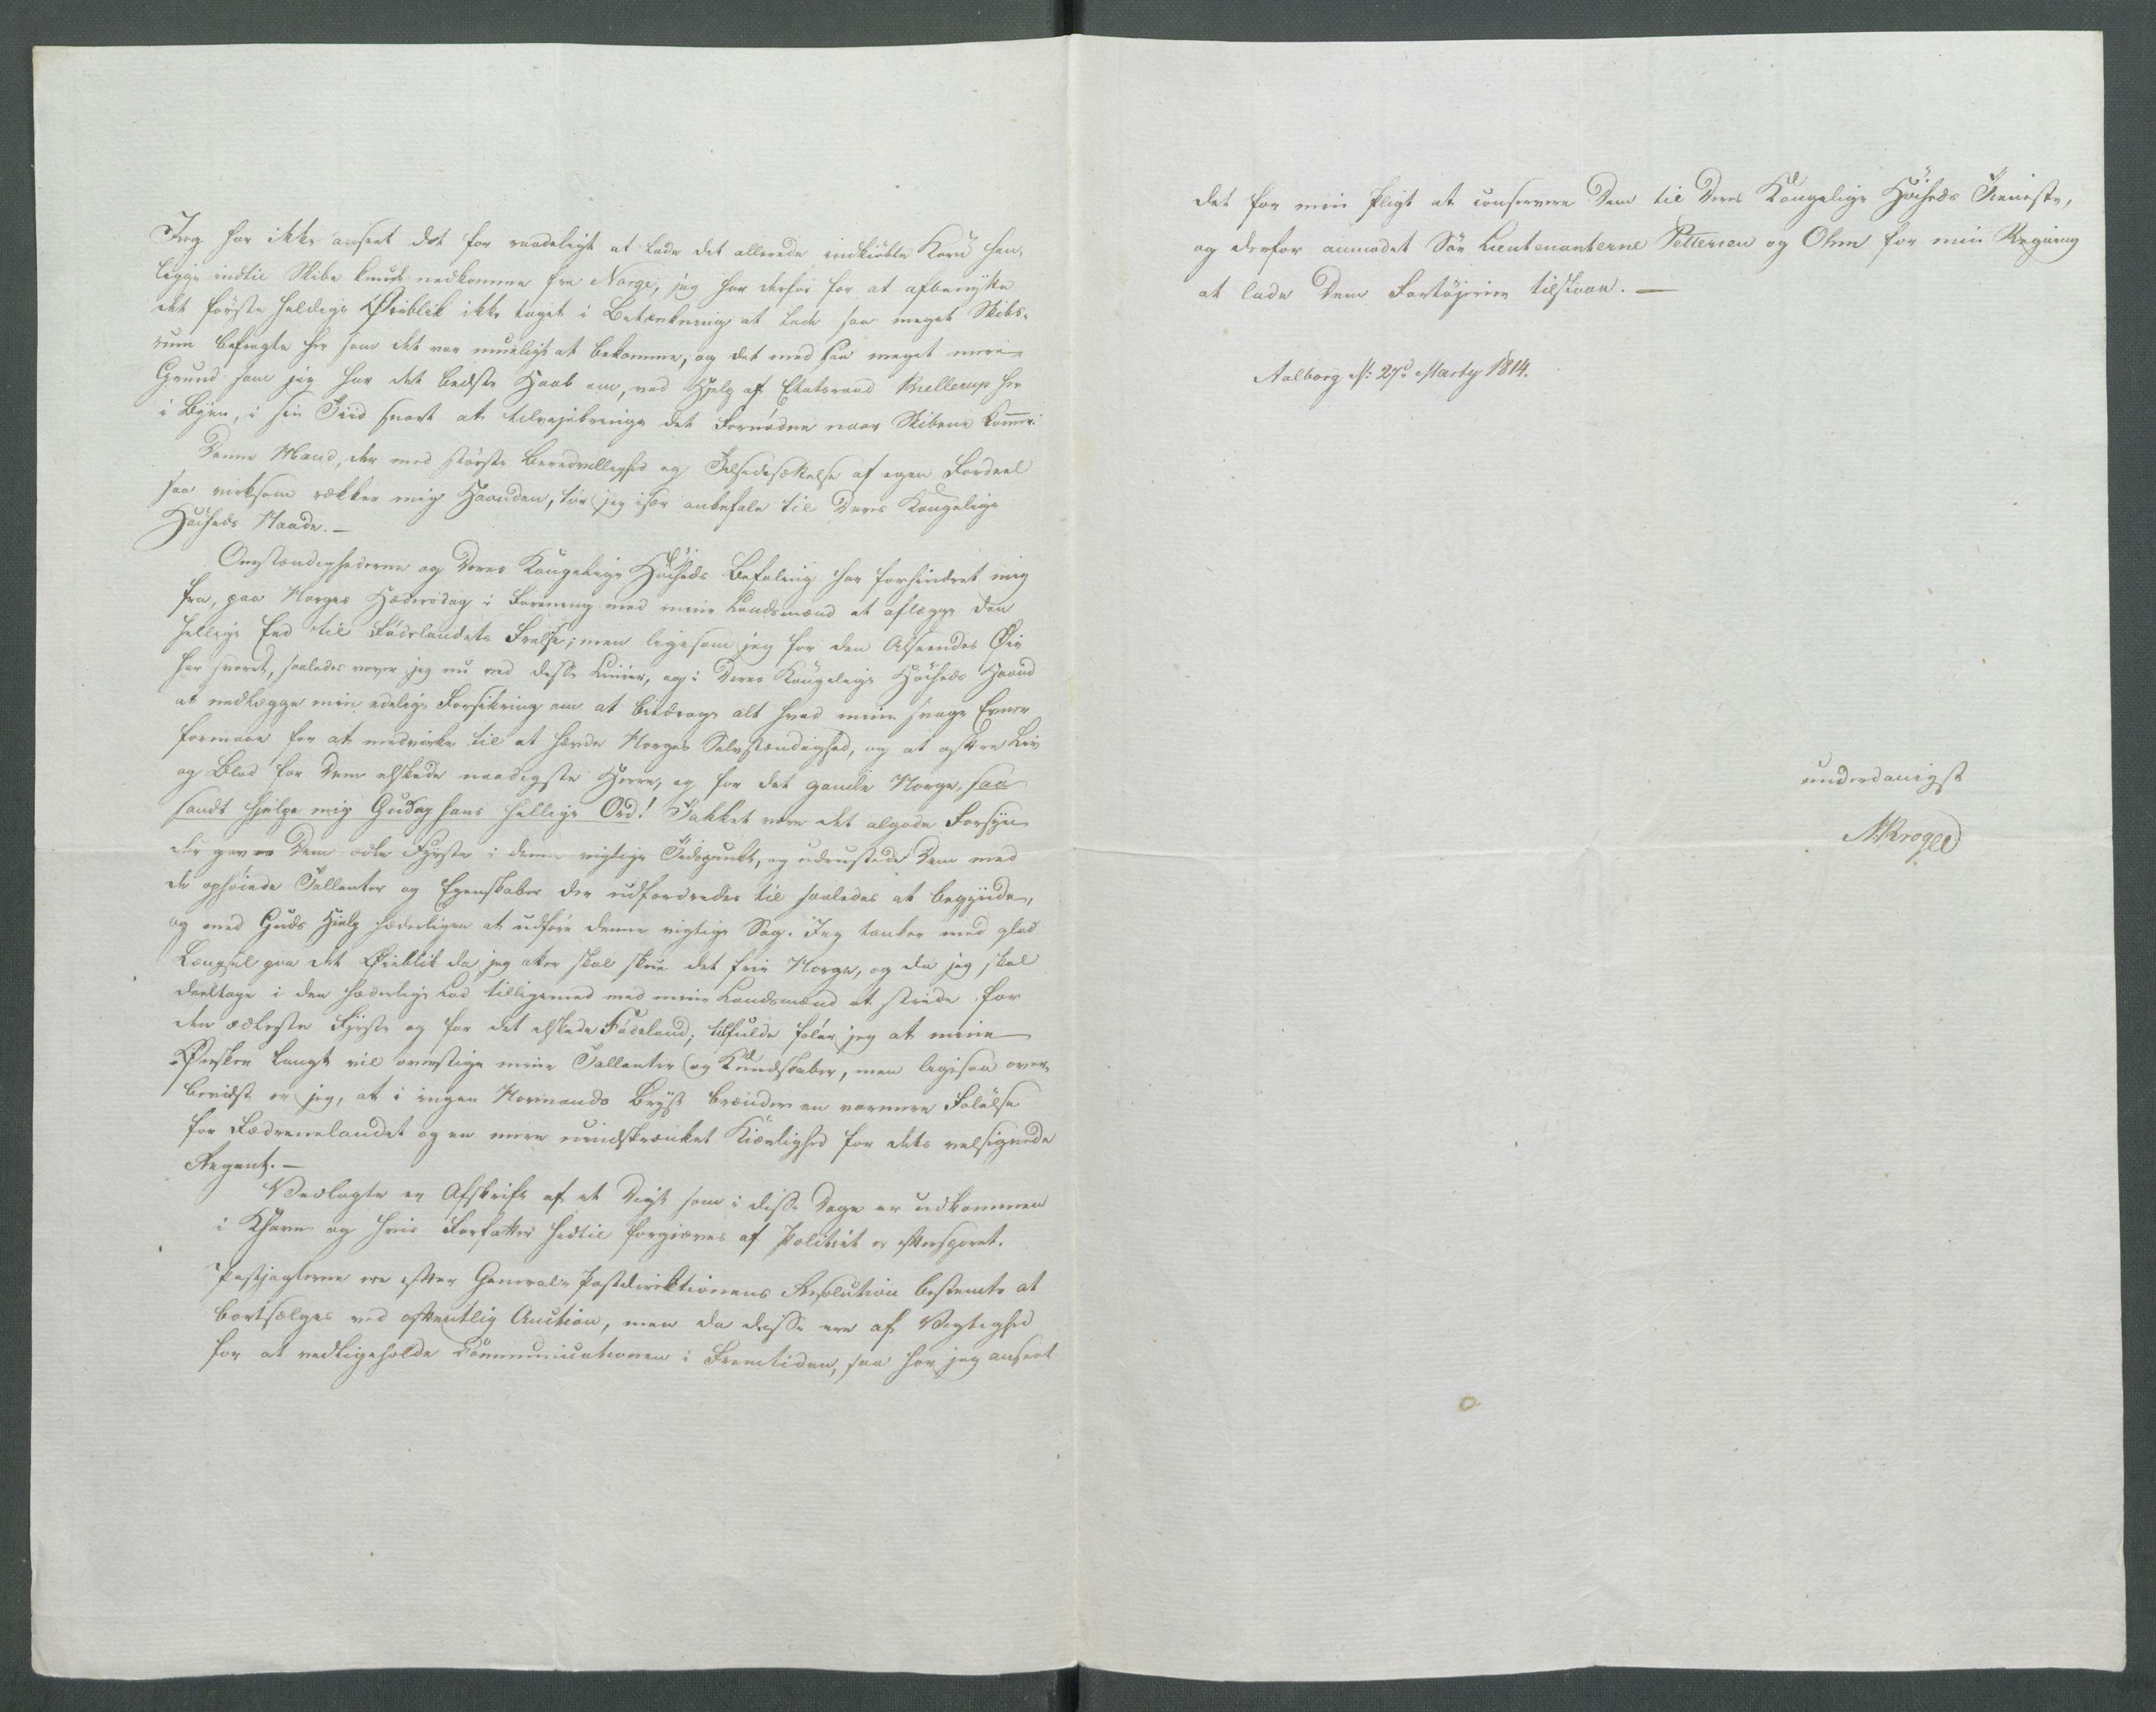 Jeg har ikke anseet det for raadeligt at lade det allerede indkiöbte Korn hen¬
ligge indtil Skibe kunde nedkomme fra Norge, jeg har derfor for at afbenytte
det förste heldige Öieblik ikke taget i Betænkning at lade saa meget Skibs¬
rum befragte her som det var mueligt at bekomme, og det med saa meget mere
Grund som jeg har det bedste Haab om, ved Hjelp af Etatsraad Kiellerup her
i Byen, i sin Tiid snart at tilvejebringe det Fornödne naar Skibene komer.
Denne Mand, der med störste Beredvillighed og Tilsidesættelse af egen Fordeel
saa virksom rækker mig Haanden, tör jeg især anbefale til Deres Kongelige
Höiheds Naade. —
Omstændighederne og Deres Kongelige Höiheds Befaling har forhindret mig
fra, paa Norges Hædersdag i Forening med mine Landsmænd at aflægge den
hellige Eed til Födelandets Frelse; men ligesom jeg for den Alseendes Öie
har svoret, saaledes vover jeg nu ved disse Linier, og i Deres Kongelige Höiheds Haand
at nedlægge min edelige Forsikring om at bidrage alt hvad mine svage Evner
formaae for at medvirke til at hævde Norges Selvstændighed, og at opofre Liv
og Blod for Dem elskede naadigste Herre, og for det gamle Norge, saa
sandt hjelpe mig Gud og hans hellige Ord! Takket være det algode Forsyn
der gav os Dem ædle Fyrste i denne vigtige Tidspunkt, og udrustede Dem med
de ophöiede Tallenter og Egenskaber der udfordredes til saaledes at begynde,
og med Guds Hielp hæderligen at udföre denne vigtige Sag. Jeg tænker med glad
Længsel paa det Öieblik da jeg atter skal skue det frie Norge, og da jeg skal
deeltage i den hæderlige Lod tilligemed mine Landsmænd at stride for
den ædleste Fyrste og for det elskede Födeland; tilfulde föler jeg at mine
Önsker langt vil overstige mine Tallenter og Kundskaber, men ligesaa over¬
beviist er jeg, at i ingen Normands Bryst brænder en varmere Fölelse
for Fædrenelandet og en mere uindskrænket Kiærlighed for dets velsignede
Regent. —
Vedlagte er Afskrift af et Digt som i disse Dage er udkommen
i Khavn og hvis Forfatter hidtil forgiæves af Politiet er eftersporet.
Postjagterne ere efter General-Postdirektionens Resolution bestemte at
bortsælges ved offentlig Auction, men da disse ere af Vigtighed
for at vedligeholde Communicationen i Fremtiden, saa har jeg anseet
det for min Pligt at conservere Dem til Deres Kongelige Höiheds Tieneste,
og derfor anmodet Söe Lieutenanterne Pettersen og Ohm for min Regning
at lade Dem Fartöjerne tilslaae. —
Aalborg d: 27d Marty 1814.
underdanigst
N. Krogh